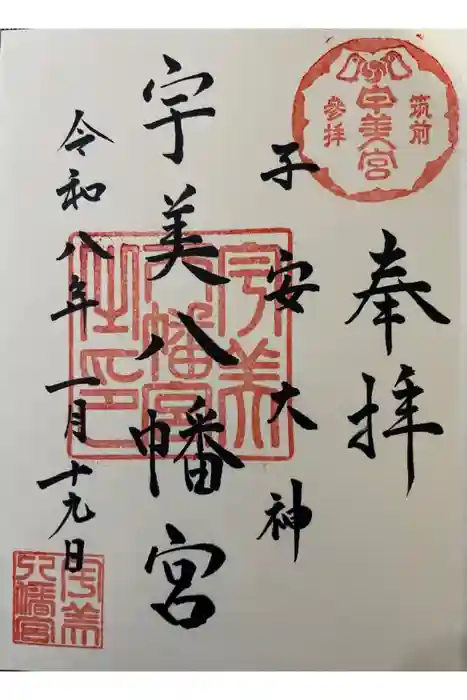 奉拝
筑前
宇美宮
参拝
子安大神
宇美八幡宮
宇美
八幡宮
之印
令和八年一月十九日
宇美
八幡宮